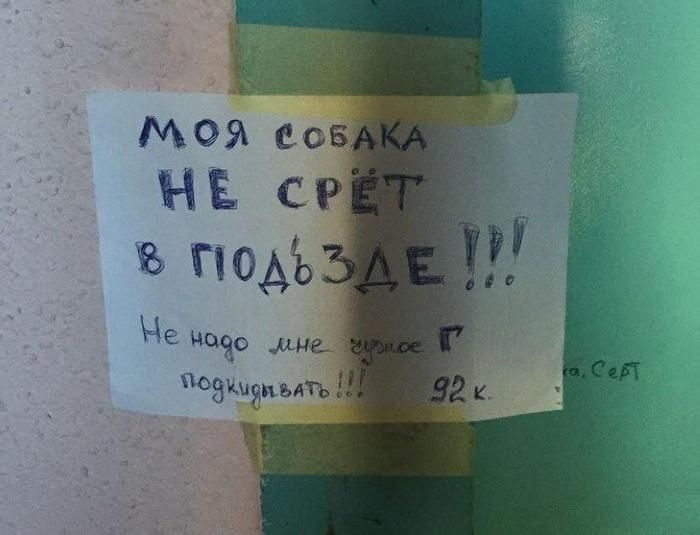 МОЯ СОБАКА
НЕ СРЁТ
В ПОДЪЗДЕ!!!
Не надо мне чужое Г
подкидывать!!! 92 к.
ка, Серт